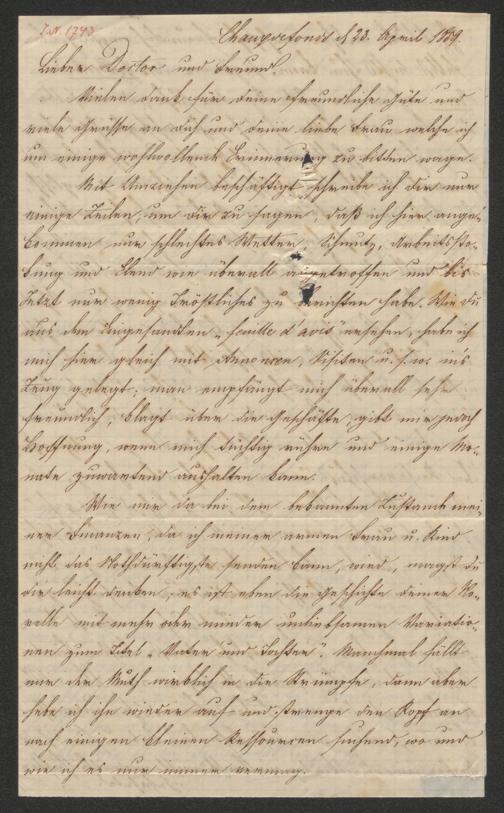 J. N. 1743
Chauxdefonds d 23. April 1859.
Lieber Doctor und Freund!
Vielen Dank für deine freundliche Güte und
viele Grüsse an dich und deine liebe Frau welche ich
um einige wohlwollende Erinnerung zu bitten wage.
Mit Umziehen beschäftigt schreibe ich dir nur
einige Zeilen, um dir zu sagen, daß ich hier ange-
kommen nur schlechtes Wetter, Schmutz, Arbeitssto-
kung und Elend wie überall angetroffen und bis
Jetzt nur wenig Tröstliches zu berichten habe. Wie du
aus dem Eingesandten „feuille d'avis" ersehen, habe ich
mich hier gleich mit Annoncen, Visiten u. s. w. ins
Zeug gelegt; man empfängt mich überall sehr
freundlich, klagt über die Geschäfte, gibt mir jedoch
Hoffnung, wenn mich tüchtig rühre und einige Mo-
nate zuwartend aushalten kann.
Wie mir da bei dem bekannten Zustande mei-
ner Finanzen, da ich meiner armen Frau u. Kind
nicht das Nothdürftigste senden kann, wird, magst du
dir leicht denken, es ist eben die Geschichte deiner No-
velle mit mehr oder minder unliebsamen Variatio-
nen zum Titel „Vater und Tochter". Manchmal fällt
mir der Muth wirklich in die Strümpfe, dann aber
hebe ich ihn wieder auf und strenge den Kopf an
nach einigen kleinen Ressourcen suchend, wo und
wie ich es nur immer vermag.